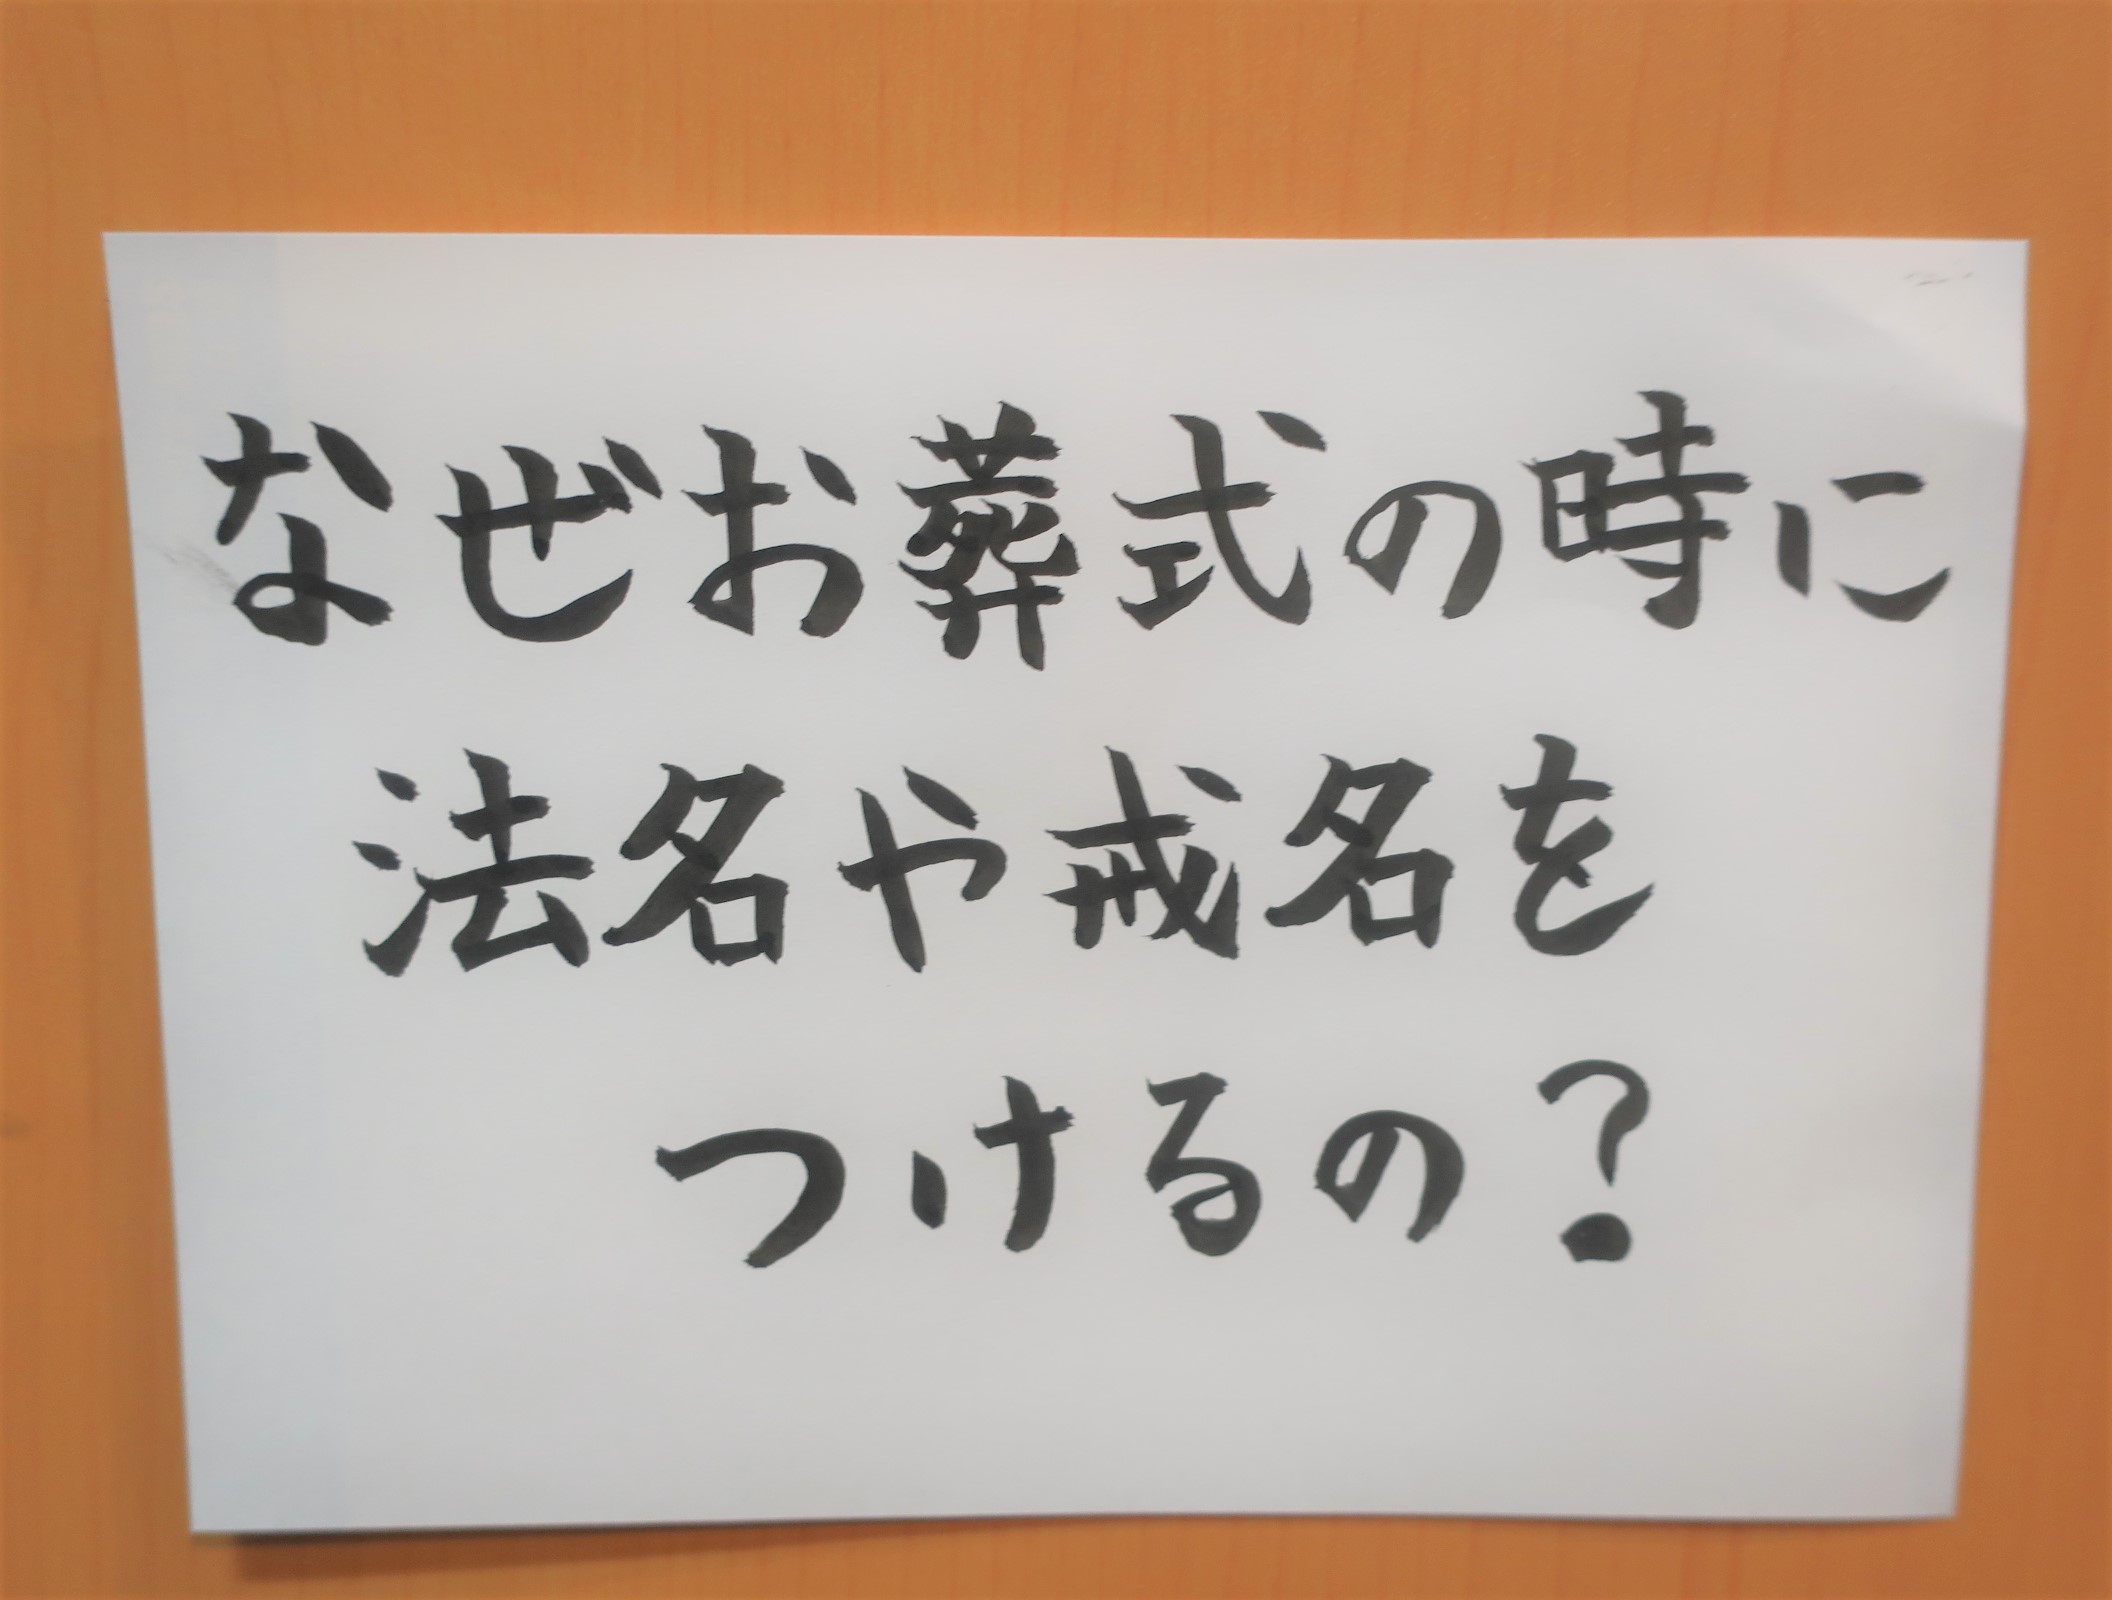 なぜお葬式の時に
法名や戒名を
つけるの?